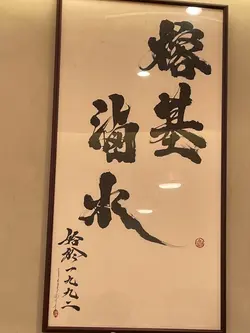 熔基
滷水
始於一九九二